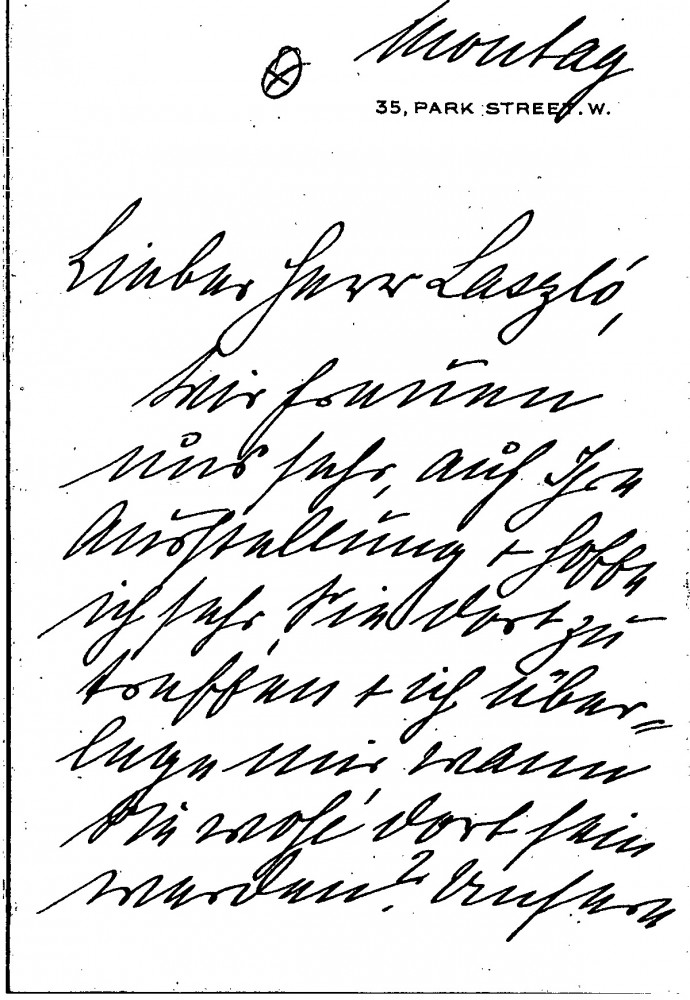 Montag
35, PARK STREET. W.
Lieber Herr Laszló,
Wir freuen
uns sehr, auf Ihre
Ausstellung + hoffe
ich sehr, Sie dort zu
treffen + ich über=
lege mir wann
Sie wohl dort sein
werden? Unsere